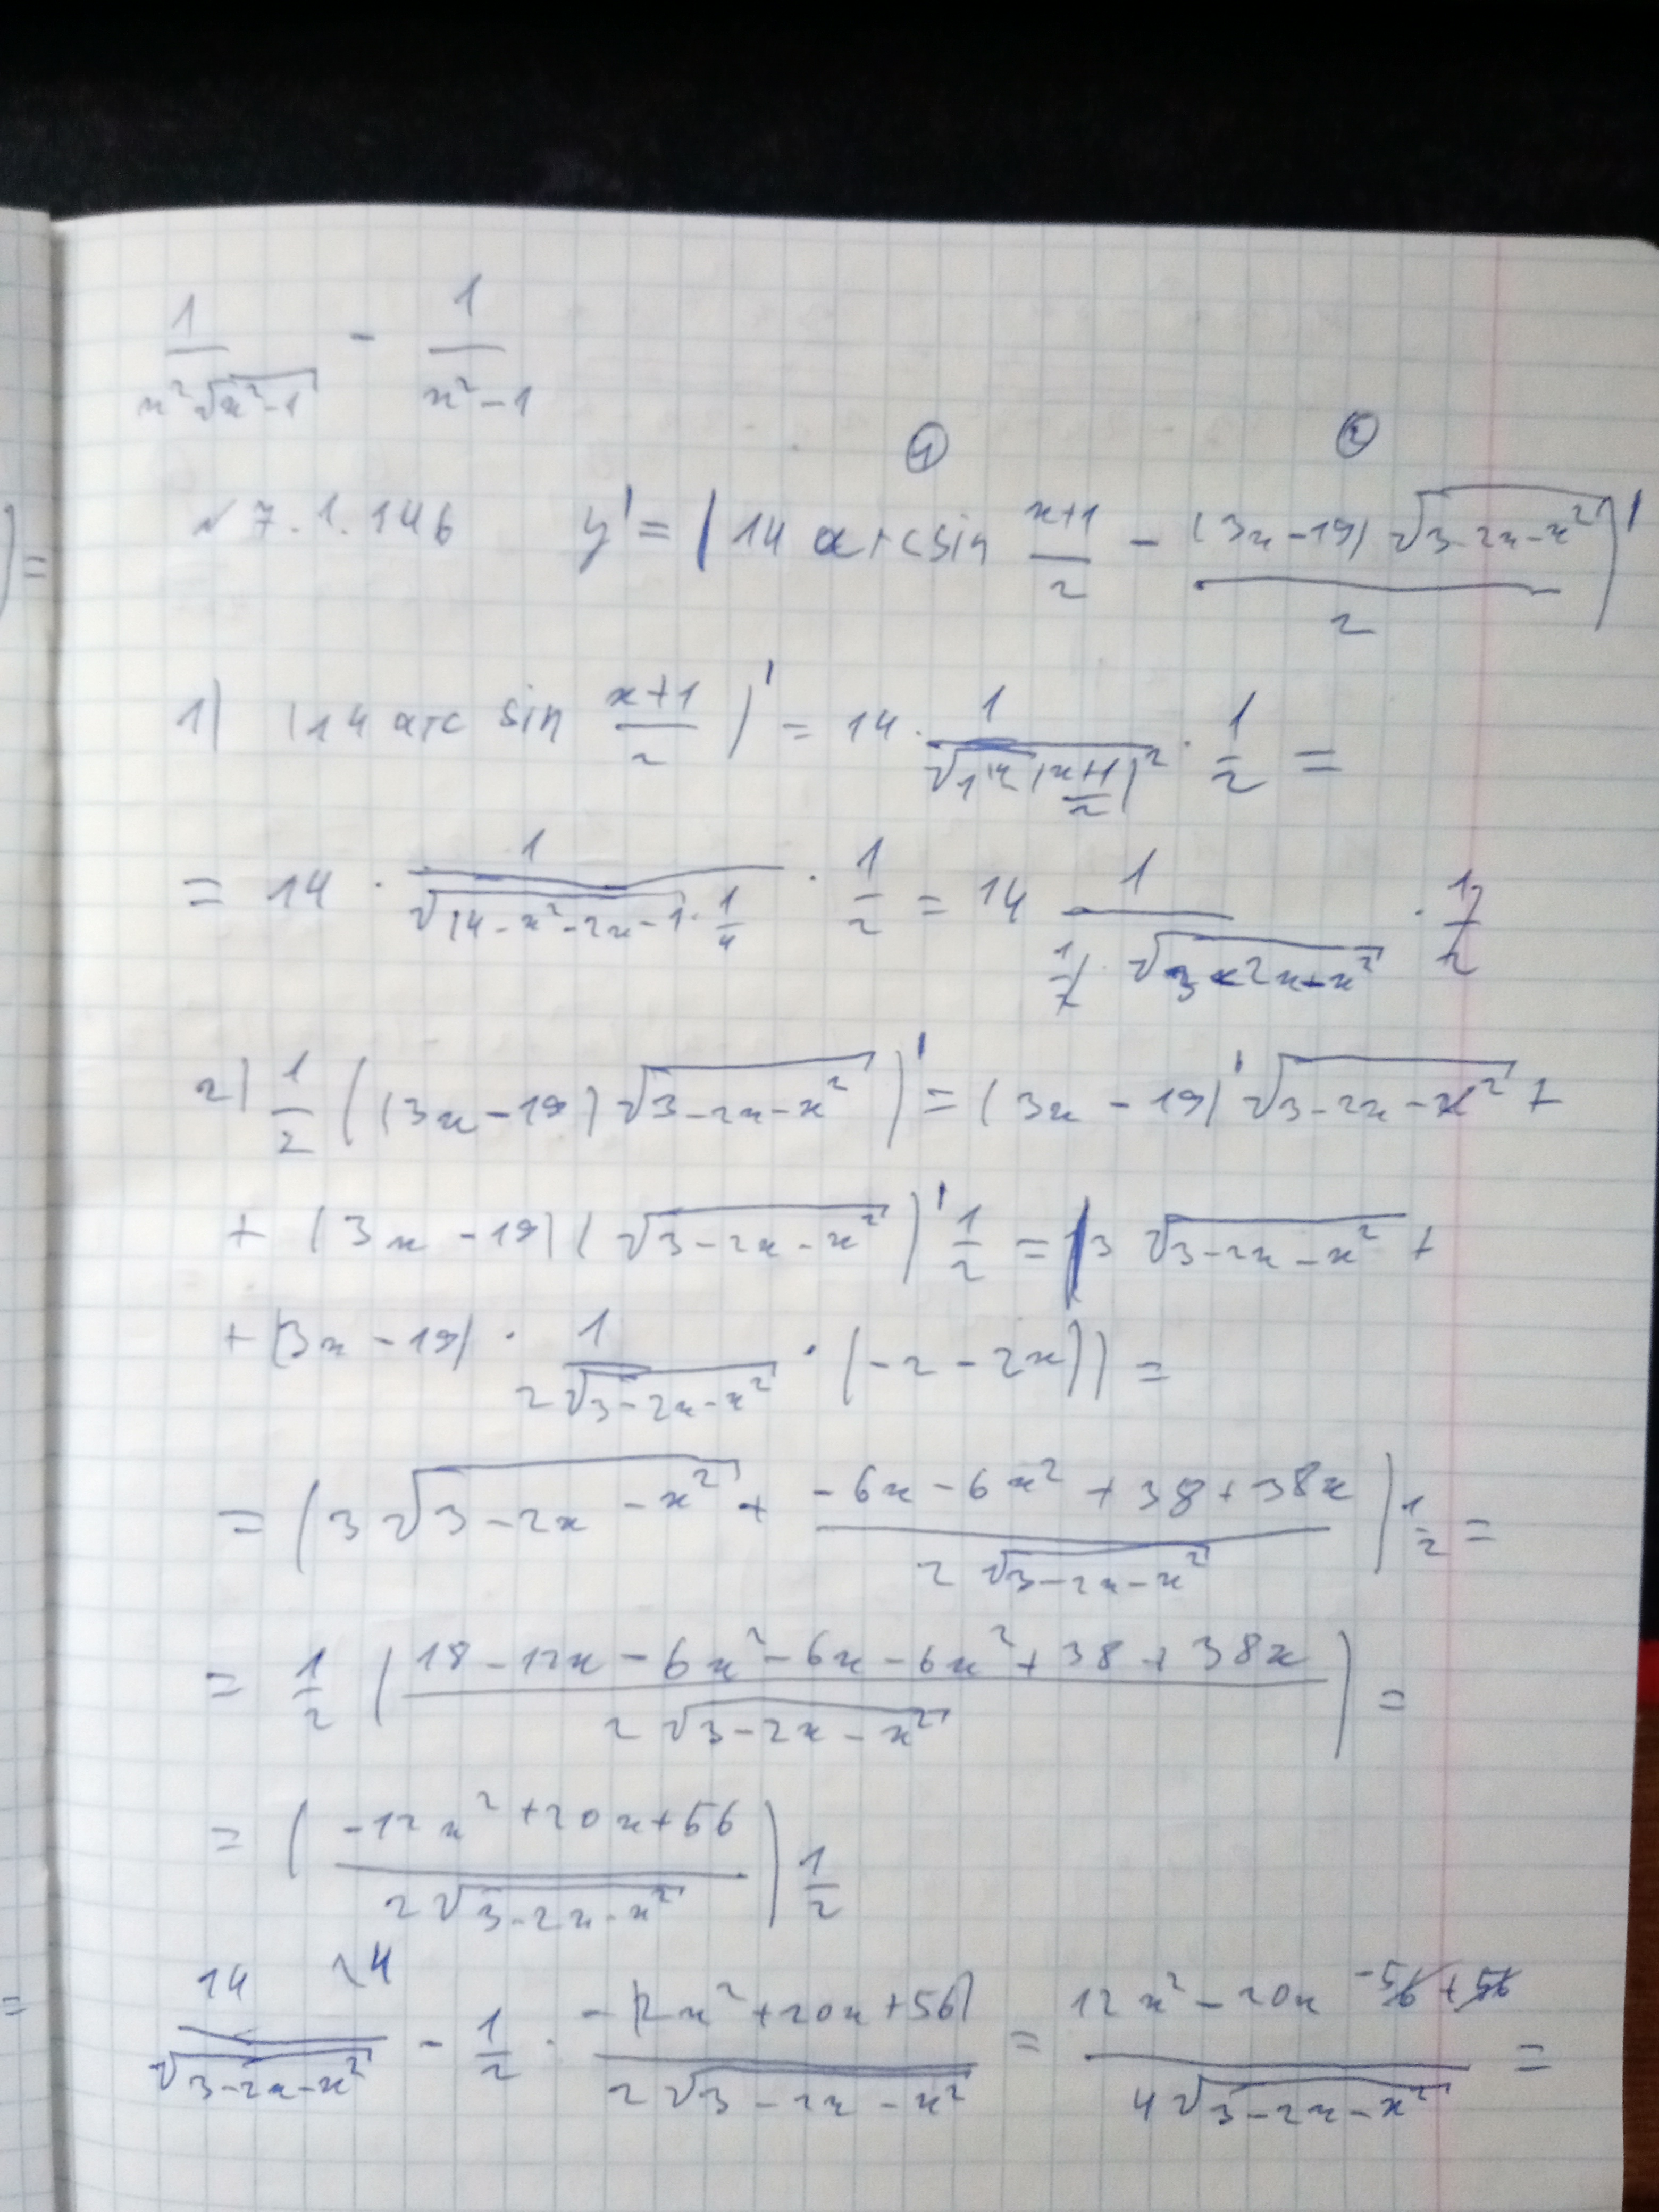 1/(x²√(x²-1)) - 1/(x²-1)
① ②
N 7.1.146 y' = (14 arcsin (x+1)/2 - ((3x-19)√(3-2x-x²))/2)'
1) (14 arc sin (x+1)/2)' = 14 · 1/√(1-((x+1)/2)²) · 1/2 =
= 14 · 1/√((4-x²-2x-1)·1/4) · 1/2 = 14 1/(1/2 · √(3-2x-x²)) · 1/2
2) 1/2 ((3x-19)√(3-2x-x²))' = (3x-19)'√(3-2x-x²) +
+ (3x-19)(√(3-2x-x²))' 1/2 = (3√(3-2x-x²) +
+ (3x-19) · 1/(2√(3-2x-x²)) · (-2-2x)) =
= (3√(3-2x-x²) + (-6x-6x²+38+38x)/(2√(3-2x-x²))) 1/2 =
= 1/2 ((18-12x-6x²-6x-6x²+38+38x)/(2√(3-2x-x²))) =
= ((-12x²+20x+56)/(2√(3-2x-x²))) 1/2
14/√(3-2x-x²) - 1/2 · (-12x²+20x+56)/(2√(3-2x-x²)) = (12x²-20x-56+56)/(4√(3-2x-x²)) =